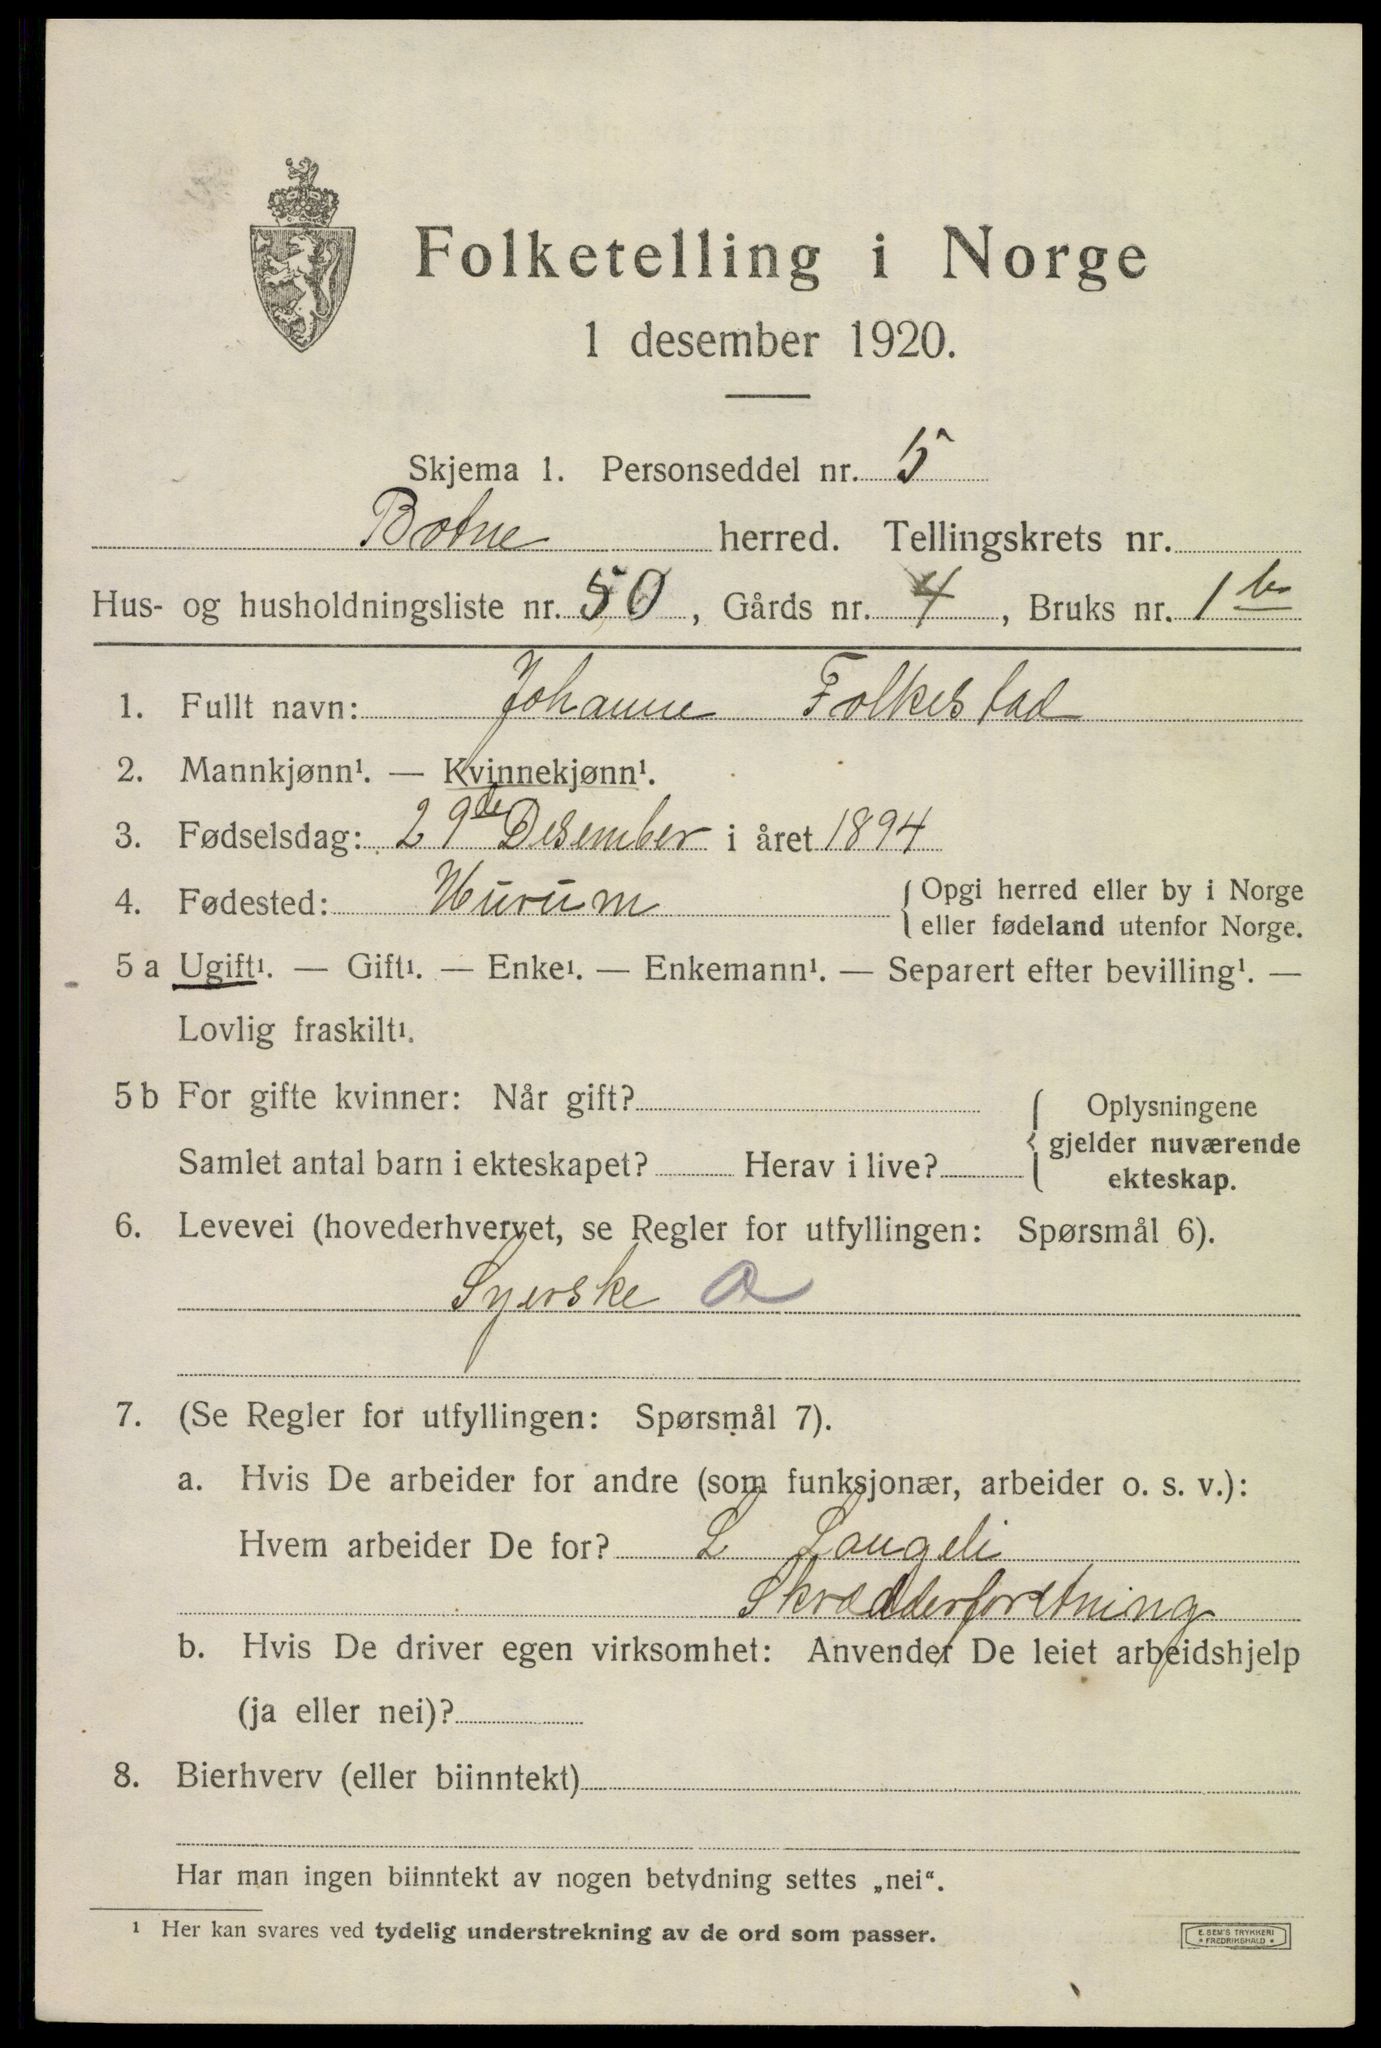 Folketelling i Norge
1 desember 1920.
Skjema 1. Personseddel nr. 5
Botne herred. Tellingskrets nr.
Hus- og husholdningsliste nr. 50, Gårds nr. 4, Bruks nr. 1
1. Fullt navn: Johanne Folkestad
2. Mannkjønn¹. — Kvinnekjønn¹.
3. Fødselsdag: 29de Desember i året 1894
4. Fødested: Hurum { Opgi herred eller by i Norge
eller fødeland utenfor Norge.
5 a Ugift¹. — Gift¹. — Enke¹. — Enkemann¹. — Separert efter bevilling¹. —
Lovlig fraskilt¹.
5 b For gifte kvinner: Når gift? { Oplysningene
gjelder nuværende
Samlet antal barn i ekteskapet? Herav i live? ekteskap.
6. Levevei (hovederhvervet, se Regler for utfyllingen: Spørsmål 6).
Syerske a
7. (Se Regler for utfyllingen: Spørsmål 7).
a. Hvis De arbeider for andre (som funksjonær, arbeider o. s. v.):
Hvem arbeider De for? L Langeli
Skrædderforetning
b. Hvis De driver egen virksomhet: Anvender De leiet arbeidshjelp
(ja eller nei)?
8. Bierhverv (eller biinntekt)
Har man ingen biinntekt av nogen betydning settes „nei“.
¹ Her kan svares ved tydelig understrekning av de ord som passer.
E. SEM'S TRYKKERI
* FREDRIKSHALD *